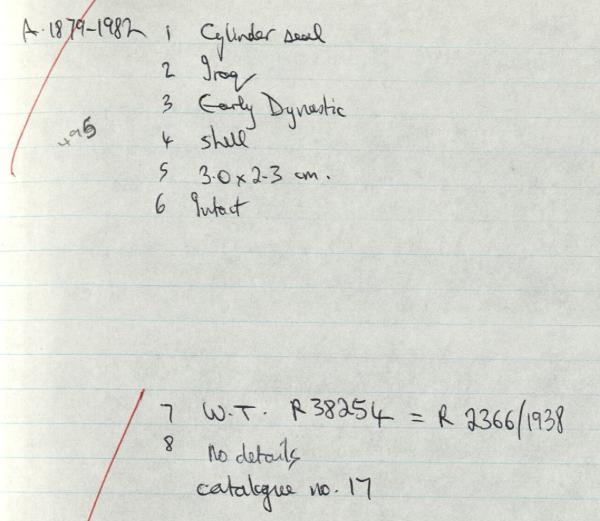 A.1879-1982 1 Cylinder seal
2 Iraq
3 Early Dynastic
4 shell
5 3.0 x 2.3 cm.
6 Intact
7 W.T. R38254 = R 2366/1938
8 No details
catalogue no. 17